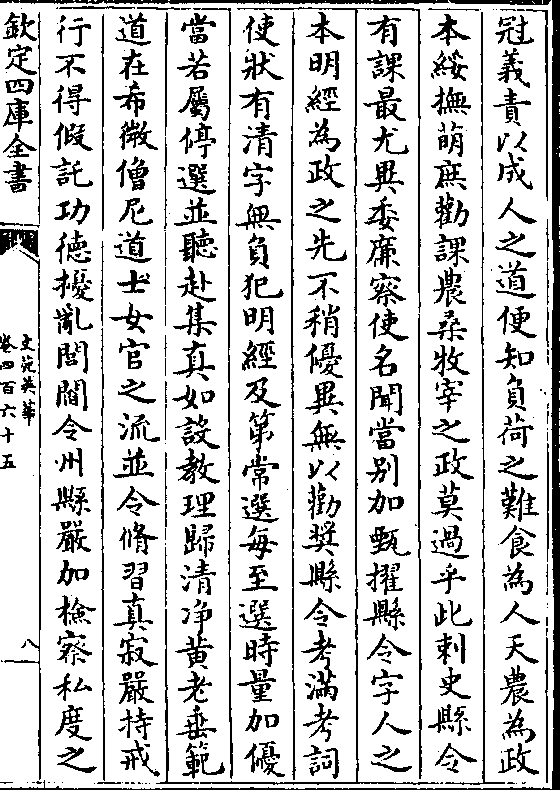 冠義責以成人之道便知負荷之難食為人天農為政
本綏撫萌庶勸課農桑牧宰之政莫過乎此刺史縣令
有課最尤異委廉察使名聞當别加甄擢縣令字人之
本明經為政之先不稍優異無以勸奬縣令考滿考詞
使狀有清字無負犯明經及第常選每至選時量加優
當若屬停選並聽赴集真如設教理歸清净黄老垂範
道在希微僧尼道士女官之流並令脩習真寂嚴持戒
行不得假託功徳擾亂閭閻令州縣嚴加檢察私度之
欽定四庫全書
文苑英華
卷四百六十五
八